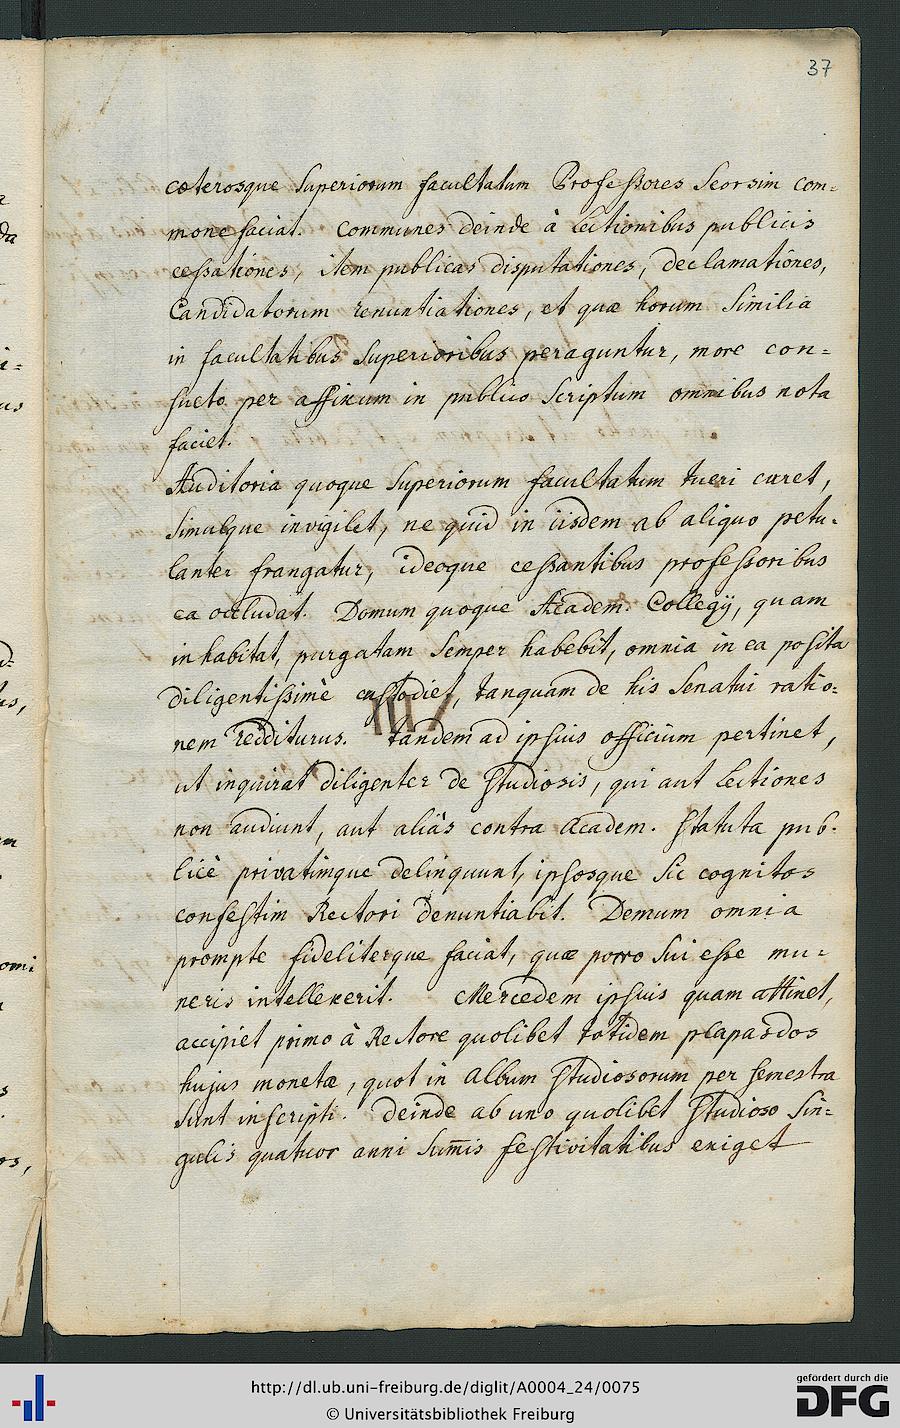 37
cœterosque Superiorum facultatum Professores Seorsim com=
monefaciat. Communes deinde à Lectionibus publicis
cessationes, item publicas disputationes, declamationes,
Candidatorum renuntiationes, et quæ horum Similia
in facultatibus Superioribus peraguntur, more con=
sueto per affixum in publico Scriptum omnibus nota
faciet.
Auditoria quoque Superiorum facultatum tueri curet,
Simulque invigilet, ne quid in iisdem ab aliquo petu=
lanter frangatur, ideoque cessantibus professoribus
ea occludat. Domum quoque Academ. Collegij, quam
inhabitat, purgatam Semper habebit, omnia in ea posita
diligentissimè custodiet, tanquam de his Senatui ratio=
nem redditurus. tandem ad ipsius officium pertinet,
ut inquirat diligenter de Studiosis, qui aut Lectiones
non audiunt, aut aliàs contra Academ. Statuta pub=
licè privatimque delinquunt, ipsosque Sic cognitos
confestim Rectori denuntiabit. Demum omnia
prompte fideliterque faciat, quæ porro Sui esse mu=
neris intellexerit. Mercedem ipsius quam attinet,
accipiet primo à Rectore quolibet totidem plapardos
hujus monetæ, quot in Album Studiosorum per semestra
Sunt inscripti. Deinde ab uno quolibet Studioso Sin=
gulis quatuor anni Sum̄is festivitatibus exiget
http://dl.ub.uni-freiburg.de/diglit/A0004_24/0075
© Universitätsbibliothek Freiburg
gefördert durch die
DFG